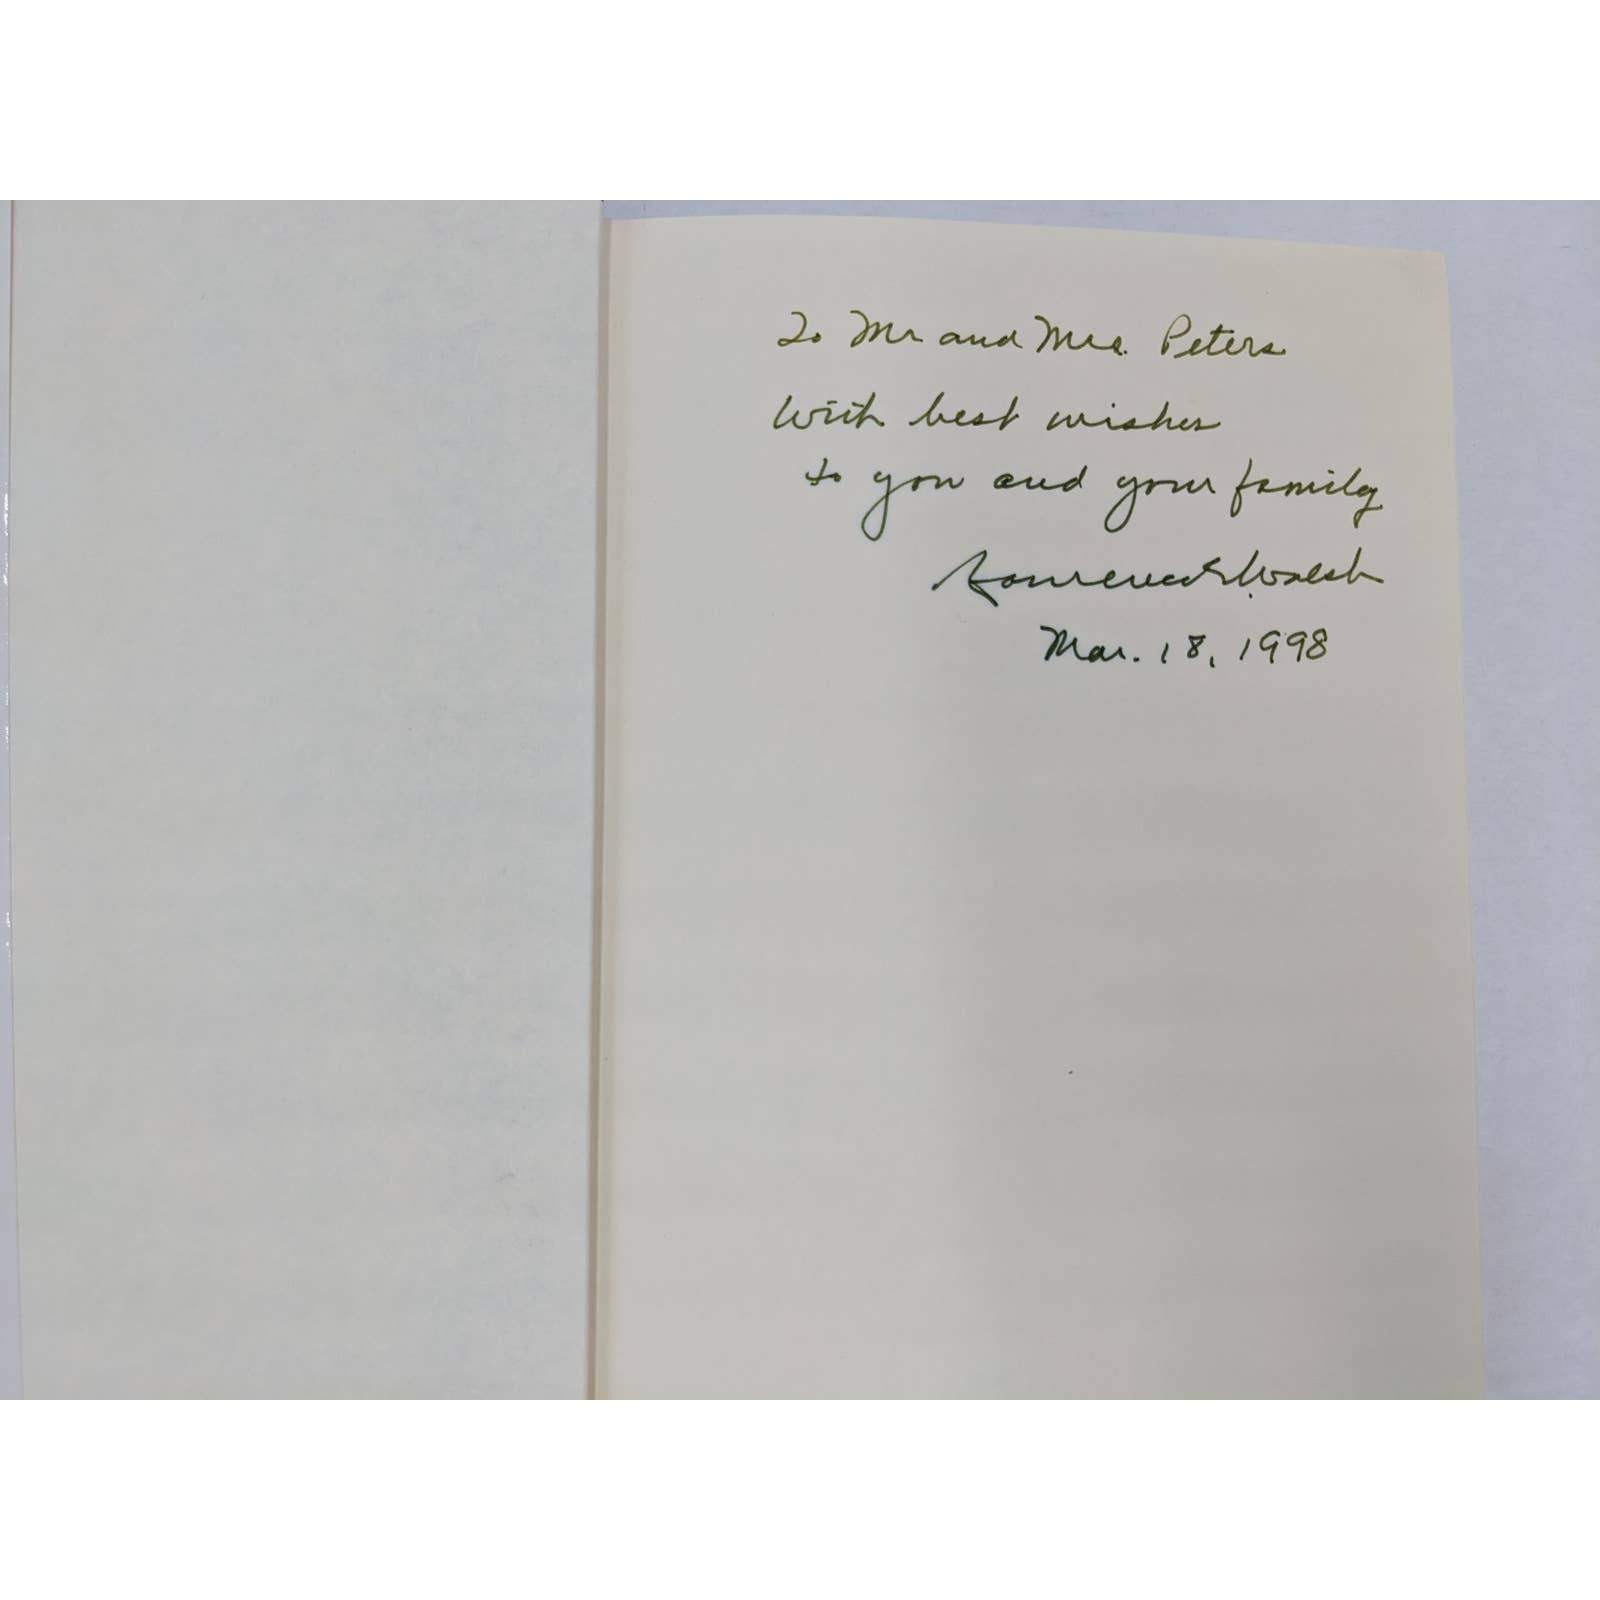 To Mr and Mrs. Peters
With best wishes
to you and your family
Lawrence E. Walsh
Mar. 18, 1998